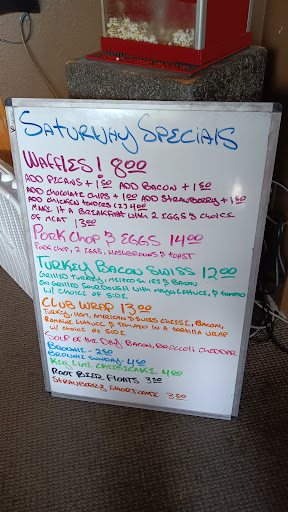 SATURDAY SPECIALS
WAFFLES! 8.00
ADD PECANS + 1.50 ADD BACON + 1.50
ADD CHOCOLATE CHIPS + 1.00 ADD STRAWBERRY + 1.50
ADD CHICKEN TENDERS (2) 4.00
MAKE IT A BREAKFAST WITH 2 EGGS & CHOICE
OF MEAT 13.00
PORK CHOP & EGGS 14.00
PORK CHOP, 2 EGGS, HASHBROWNS & TOAST
TURKEY BACON SWISS 12.00
GRILLED TURKEY, MELTED SWISS & BACON
ON GRILLED SOURDOUGH WITH MAYO, LETTUCE, & TOMATO
W/ CHOICE OF SIDE
CLUB WRAP 13.00
TURKEY, HAM, AMERICAN & SWISS CHEESE, BACON,
ROMAINE LETTUCE & TOMATO IN A TORTILLA WRAP
W/ CHOICE OF SIDE
SOUP OF THE DAY BACON, BROCCOLI CHEDDAR
BROWNIE - 2.50
BROWNIE SUNDAY - 4.50
KEY LIME CHEESECAKE 4.00
ROOT BEER FLOATS 3.50
STRAWBERRY SHORTCAKE 3.50